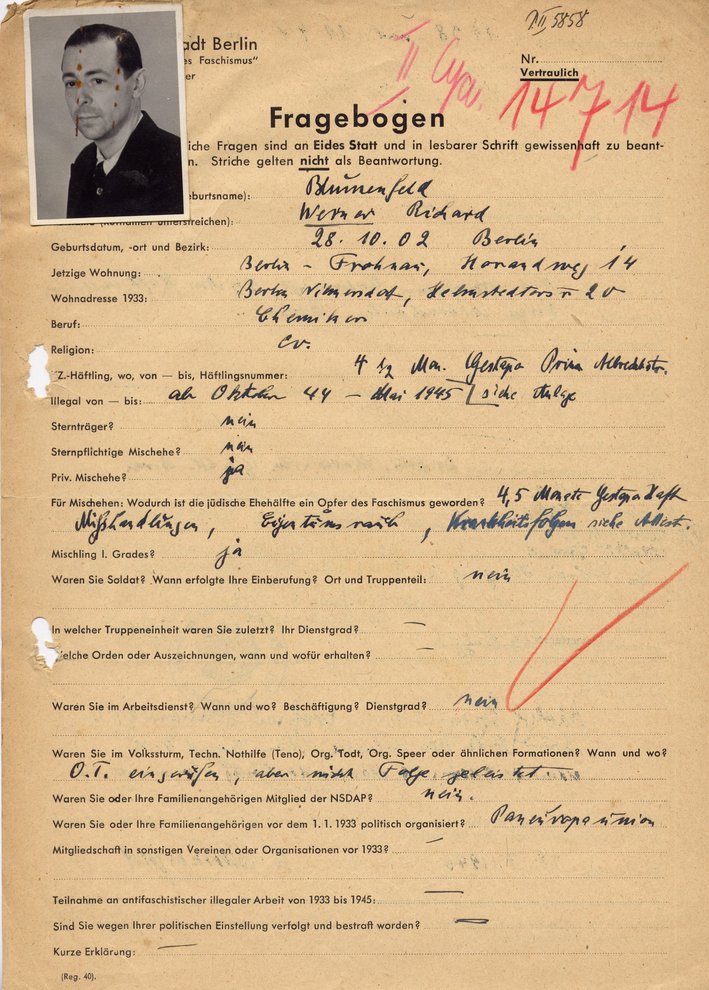 VII 5858
adt Berlin
es Faschismus"
er
Nr.
Vertraulich
II
14714
Fragebogen
iche Fragen sind an Eides Statt und in lesbarer Schrift gewissenhaft zu beant-
n. Striche gelten nicht als Beantwortung.
eburtsname): Blumenfeld
unterstreichen): Werner Richard
Geburtsdatum, -ort und Bezirk: 28. 10. 02 Berlin
Jetzige Wohnung: Berlin - Frohnau, Horandweg 14
Wohnadresse 1933: Berlin Wilmersdorf, Helmstedterstr 20
Beruf: Chemiker
Religion: ev.
Z.-Häftling, wo, von — bis, Häftlingsnummer: 4 1/2 Mon. Gestapo Prinz Albrechtstr.
Illegal von — bis: ab Oktober 44 - Mai 1945 siehe Anlage
Sternträger? nein
Sternpflichtige Mischehe? nein
Priv. Mischehe? ja
Für Mischehen: Wodurch ist die jüdische Ehehälfte ein Opfer des Faschismus geworden? 4,5 Monate Gestapo Haft
Mißhandlungen, Eigentumsraub, Krankheitsfolgen siehe Attest.
Mischling I. Grades? ja
Waren Sie Soldat? Wann erfolgte Ihre Einberufung? Ort und Truppenteil: nein
In welcher Truppeneinheit waren Sie zuletzt? Ihr Dienstgrad? —
elche Orden oder Auszeichnungen, wann und wofür erhalten? —
Waren Sie im Arbeitsdienst? Wann und wo? Beschäftigung? Dienstgrad? nein
Waren Sie im Volkssturm, Techn. Nothilfe (Teno), Org. Todt, Org. Speer oder ähnlichen Formationen? Wann und wo?
O.T. eingezogen, aber nicht Folge geleistet
Waren Sie oder Ihre Familienangehörigen Mitglied der NSDAP? nein.
Waren Sie oder Ihre Familienangehörigen vor dem 1. 1. 1933 politisch organisiert? Paneuropaunion
Mitgliedschaft in sonstigen Vereinen oder Organisationen vor 1933? —
Teilnahme an antifaschistischer illegaler Arbeit von 1933 bis 1945: —
Sind Sie wegen Ihrer politischen Einstellung verfolgt und bestraft worden? —
Kurze Erklärung: —
(Reg. 40).